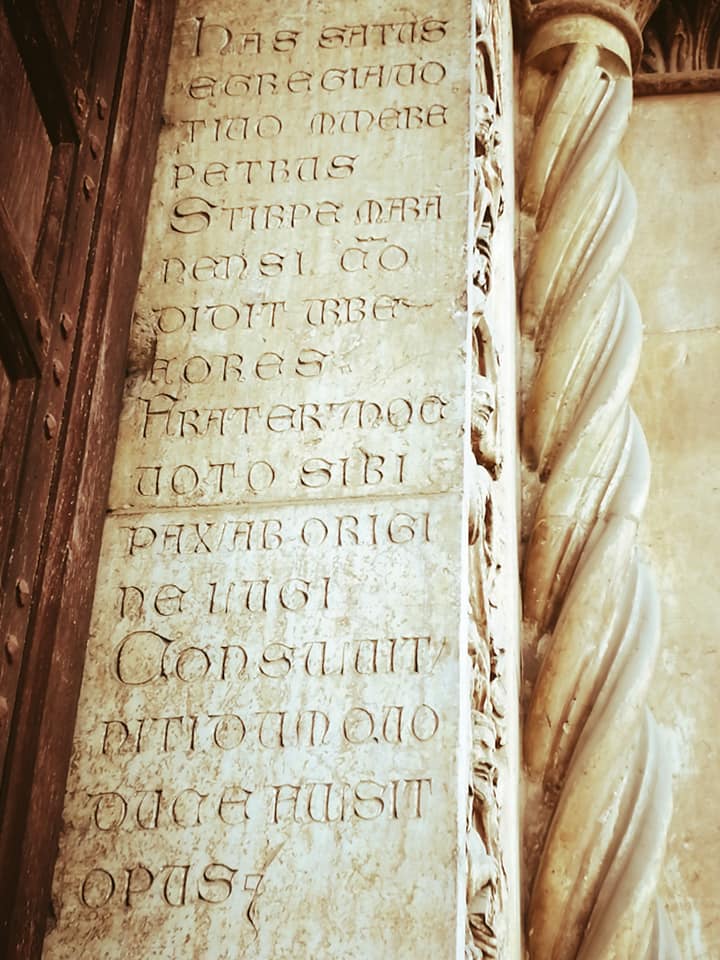 HAS SATUS
EGREGIA/UO
TIUO MUNERE
PETRUS
STIRPE MARA
NENSI CŌO
DIDIT URBE
FORES
FRATERNOQE
UOTO SIBI
PAX/AB ORIGI
NE
CONSULUIT/
NITIDUM QUO
DUCE FULSIT
OPUS